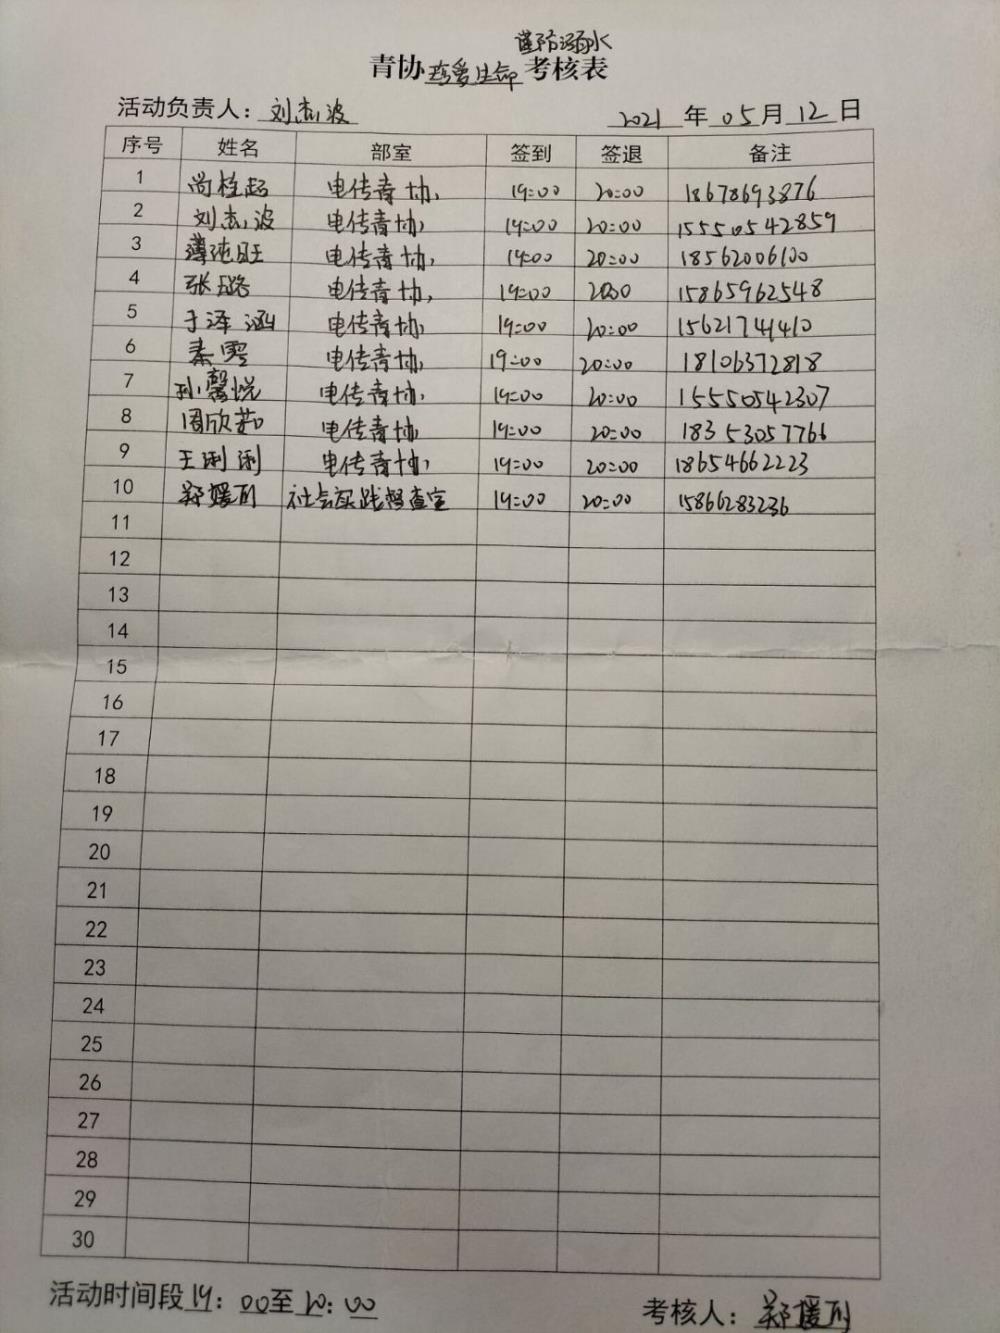 谨防溺水
青协珍爱生命考核表
活动负责人：刘志波 2021年05月12日
序号 姓名 部室 签到 签退 备注
1 尚栓超 电传青协 19:00 20:00 18678693876
2 刘志波 电传青协 19:00 20:00 15550542859
3 薄纯旺 电传青协 19:00 20:00 18562006100
4 张璐 电传青协 19:00 2000 15865962548
5 于泽涵 电传青协 19:00 20:00 15621741410
6 秦雪 电传青协 19:00 20:00 18106372818
7 孙馨悦 电传青协 19:00 20:00 15550542307
8 周欣茹 电传青协 19:00 20:00 18353057766
9 王俐俐 电传青协 19:00 20:00 18654662223
10 郑媛 社会实践督查室 19:00 20:00 15866283236
11
12
13
14
15
16
17
18
19
20
21
22
23
24
25
26
27
28
29
30
活动时间段19：00至20：00 考核人：郑媛